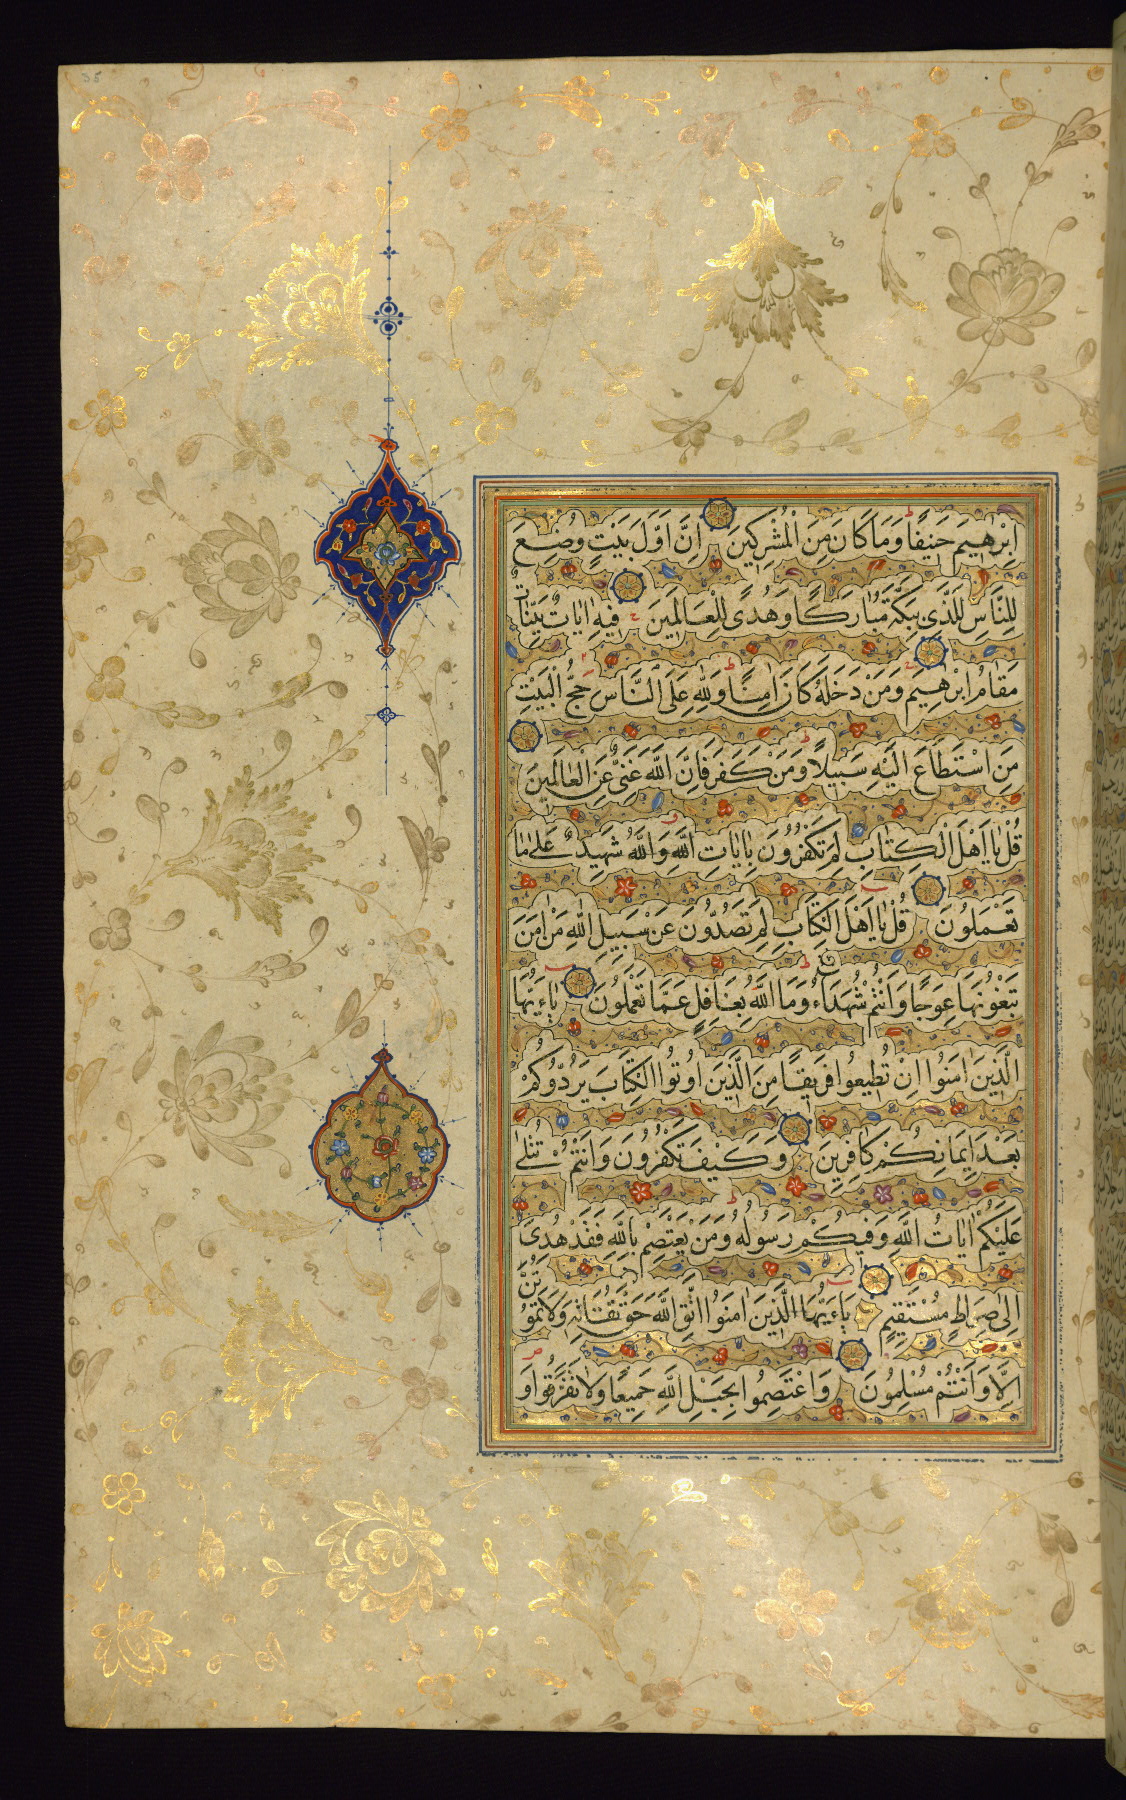 35
اِبْرٰهِيمَ حَنِيفًا وَمَا كَانَ مِنَ الْمُشْرِكِينَ اِنَّ اَوَّلَ بَيْتٍ وُضِعَ
لِلنَّاسِ لَلَّذِي بِبَكَّةَ مُبَارَكًا وَهُدًى لِلْعَالَمِينَ فِيهِ اٰيَاتٌ بَيِّنَاتٌ
مَقَامُ اِبْرٰهِيمَ وَمَنْ دَخَلَهُ كَانَ اٰمِنًا وَلِلّٰهِ عَلَى النَّاسِ حِجُّ الْبَيْتِ
مَنِ اسْتَطَاعَ اِلَيْهِ سَبِيلًا وَمَنْ كَفَرَ فَاِنَّ اللّٰهَ غَنِيٌّ عَنِ الْعَالَمِينَ
قُلْ يَا اَهْلَ الْكِتَابِ لِمَ تَكْفُرُونَ بِاٰيَاتِ اللّٰهِ وَاللّٰهُ شَهِيدٌ عَلٰى مَا
تَعْمَلُونَ قُلْ يَا اَهْلَ الْكِتَابِ لِمَ تَصُدُّونَ عَنْ سَبِيلِ اللّٰهِ مَنْ اٰمَنَ
تَبْغُونَهَا عِوَجًا وَاَنْتُمْ شُهَدَاءُ وَمَا اللّٰهُ بِغَافِلٍ عَمَّا تَعْمَلُونَ يَاءَيُّهَا
الَّذِينَ اٰمَنُوا اِنْ تُطِيعُوا فَرِيقًا مِنَ الَّذِينَ اُوتُوا الْكِتَابَ يَرُدُّوكُمْ
بَعْدَ اِيمَانِكُمْ كَافِرِينَ وَكَيْفَ تَكْفُرُونَ وَاَنْتُمْ تُتْلٰى
عَلَيْكُمْ اٰيَاتُ اللّٰهِ وَفِيكُمْ رَسُولُهُ وَمَنْ يَعْتَصِمْ بِاللّٰهِ فَقَدْ هُدِيَ
اِلٰى صِرَاطٍ مُسْتَقِيمٍ يَاءَيُّهَا الَّذِينَ اٰمَنُوا اتَّقُوا اللّٰهَ حَقَّ تُقَاتِهِ وَلَا تَمُوتُنَّ
اِلَّا وَاَنْتُمْ مُسْلِمُونَ وَاعْتَصِمُوا بِحَبْلِ اللّٰهِ جَمِيعًا وَلَا تَفَرَّقُوا وَ